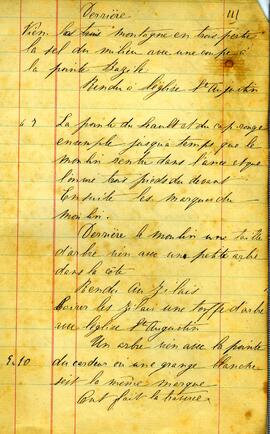 Derrière 111
Viens les trois montagne en trois partie
la sel du milieu avec une coupe à
la pointe
Rendu à l'église St Augustin
6 7 La pointe du et du cap rouge
ensemple jusqu'à temps que le
moulin rentre dans l'ance et que
trois pieds du devant
Ensuite les marques du
moulin.
Derrière le moulin une taille
d'arbre vien avec une petite arbre
dans la côte
Rendu au Jilais
les Jilais une touffe d'arbre
avec l'église St Augustin
Un arbre vien avec la pointe
9. 10 du cardeur ou une grange blanche
soit la même marque
Ont fait la traverse.